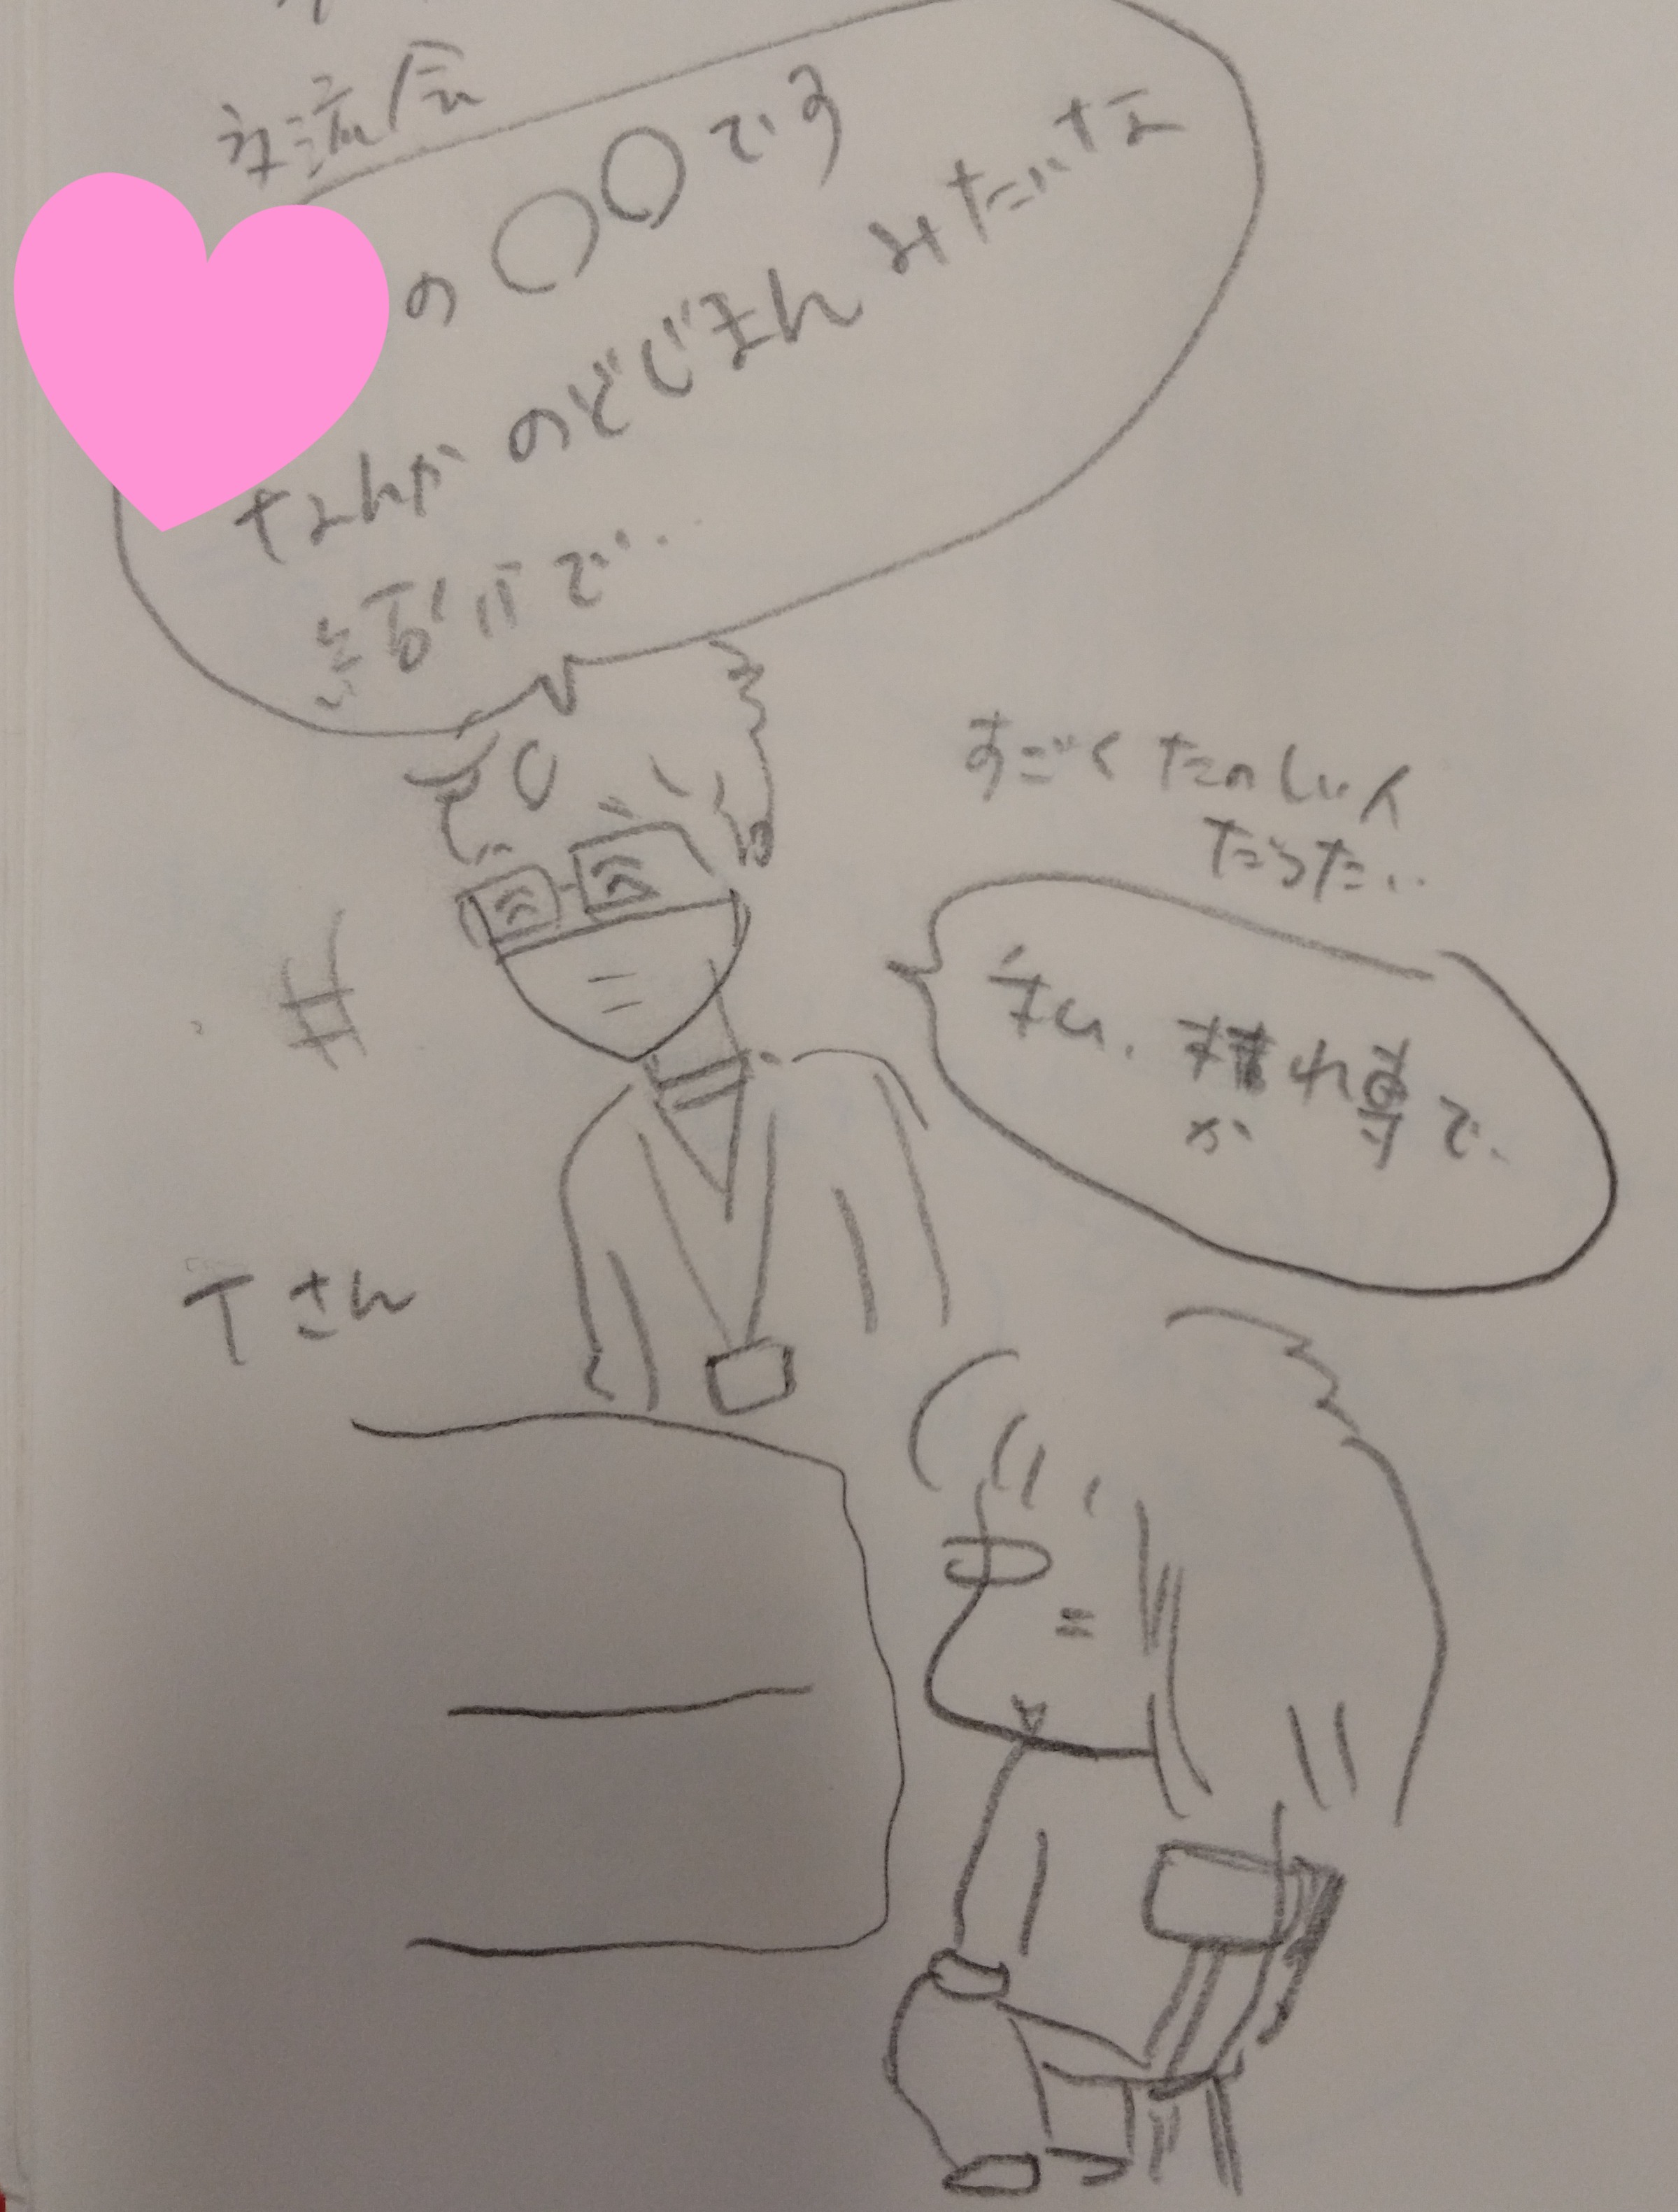 交流会
の〇〇です
なんかのどじまんみたいな
紹介で…
すごくたのしい人
だった…
私、
で、
Tさん